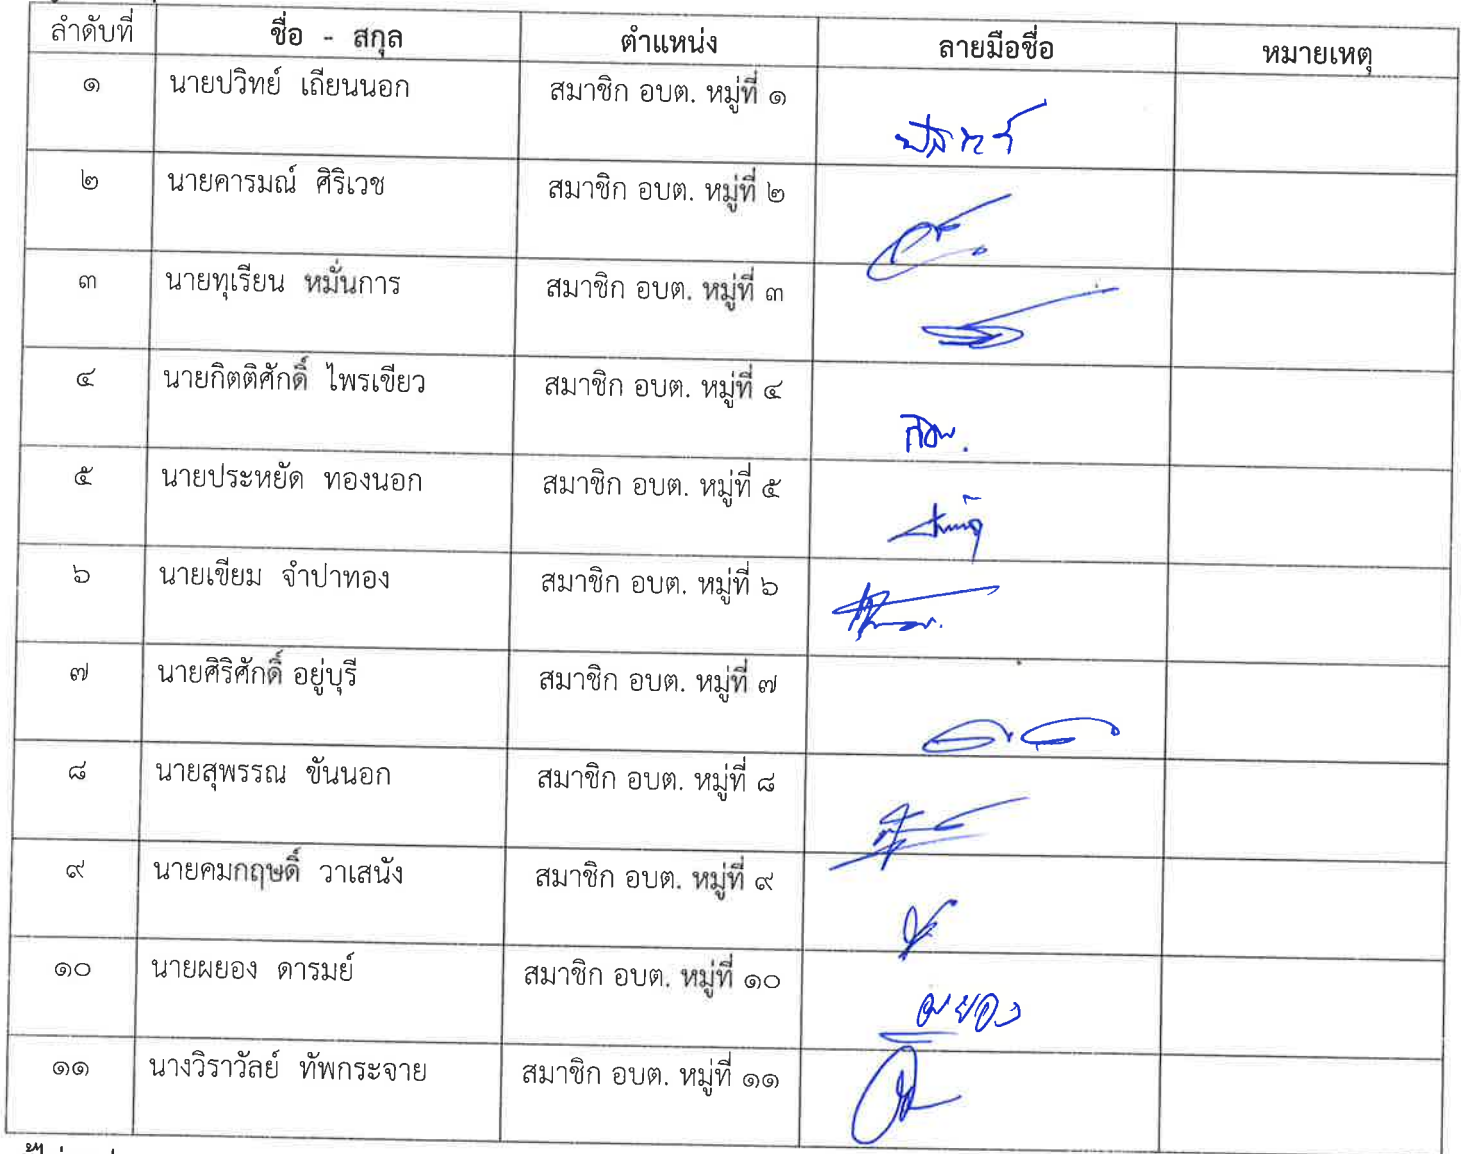 ลำดับที่ ชื่อ - สกุล ตำแหน่ง ลายมือชื่อ หมายเหตุ
๑ นายปวิทย์ เถียนนอก สมาชิก อบต. หมู่ที่ ๑
๒ นายคารมณ์ ศิริเวช สมาชิก อบต. หมู่ที่ ๒
๓ นายทุเรียน หมั่นการ สมาชิก อบต. หมู่ที่ ๓
๔ นายกิตติศักดิ์ ไพรเขียว สมาชิก อบต. หมู่ที่ ๔
๕ นายประหยัด ทองนอก สมาชิก อบต. หมู่ที่ ๕
๖ นายเขียม จำปาทอง สมาชิก อบต. หมู่ที่ ๖
๗ นายศิริศักดิ์ อยู่บุรี สมาชิก อบต. หมู่ที่ ๗
๘ นายสุพรรณ ขันนอก สมาชิก อบต. หมู่ที่ ๘
๙ นายคมกฤษดิ์ วาเสนัง สมาชิก อบต. หมู่ที่ ๙
๑๐ นายผยอง ดารมย์ สมาชิก อบต. หมู่ที่ ๑๐
ผยอง
๑๑ นางวิราวัลย์ ทัพกระจาย สมาชิก อบต. หมู่ที่ ๑๑